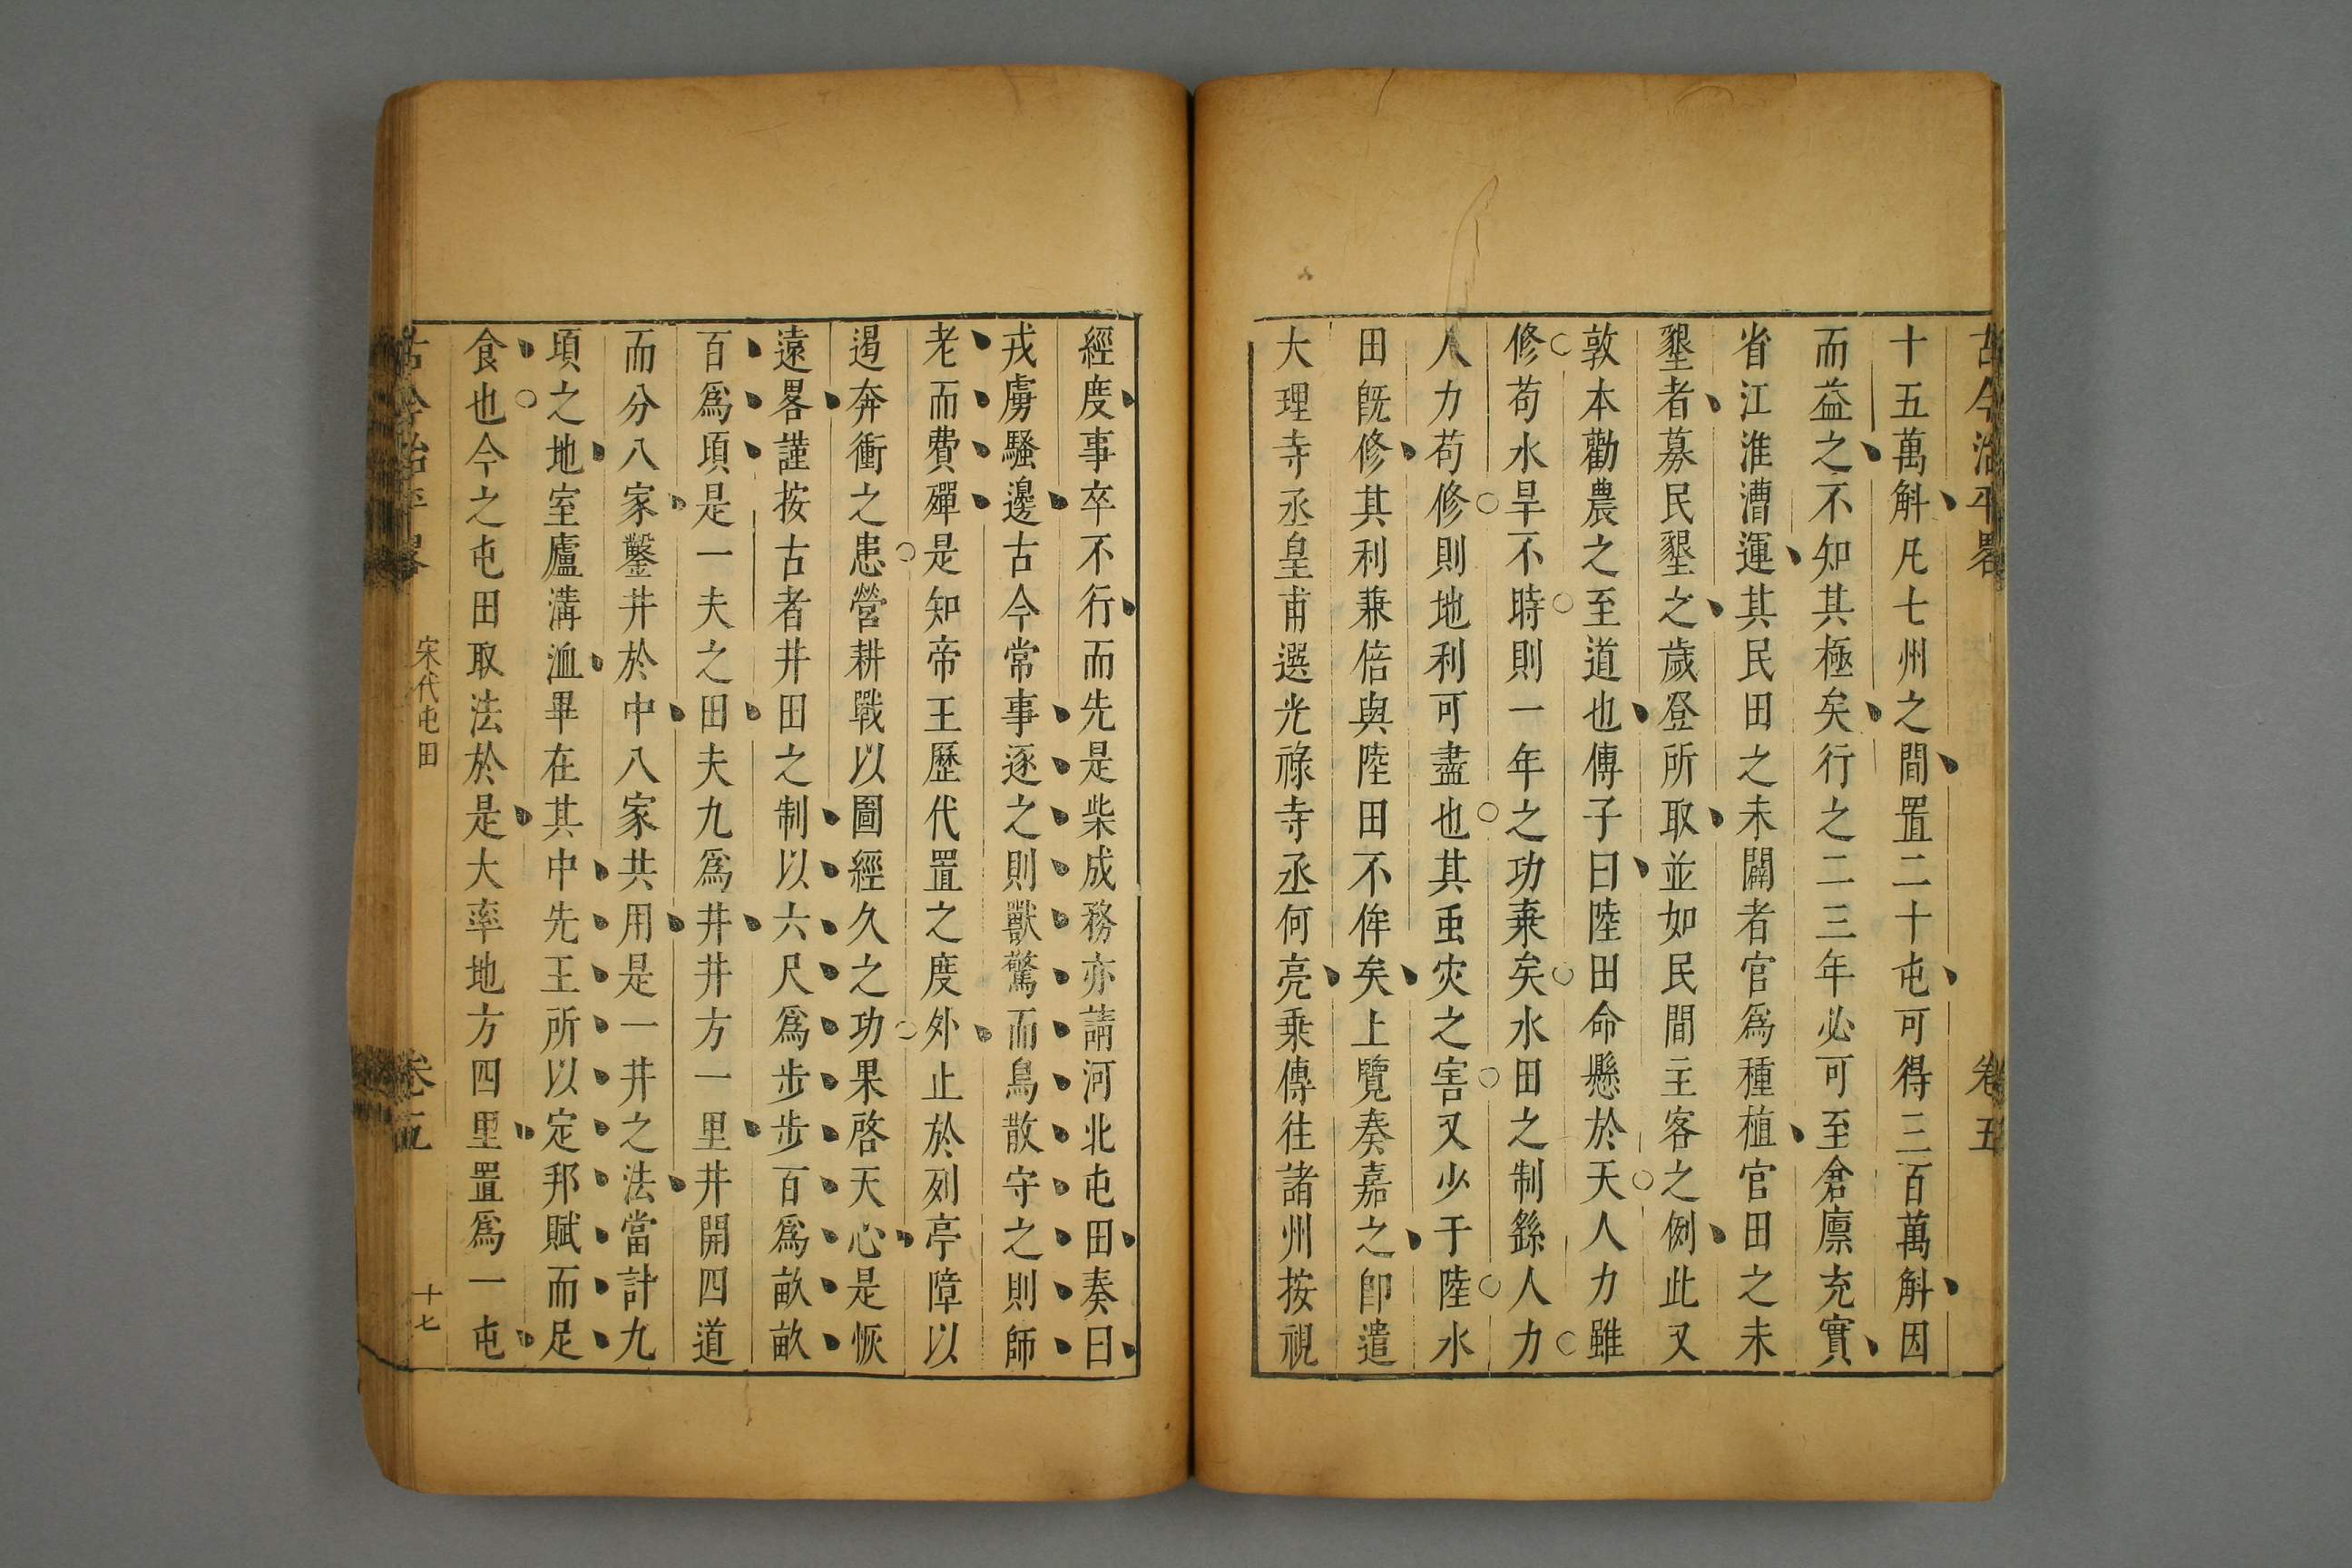 古今治平畧 卷五
十五萬斛凡七州之間置二十屯可得三百萬斛因
而益之不知其極矣行之二三年必可至倉廩充實
省江淮漕運其民田之未闢者官爲種植官田之未
墾者募民墾之歲登所取並如民間主客之例此又
敦本勸農之至道也傅子曰陸田命懸於天人力雖
修苟水旱不時則一年之功棄矣水田之制繇人力
人力苟修則地利可盡也其虫灾之害又少于陸水
田旣修其利兼倍與陸田不侔矣上覽奏嘉之卽遣
大理寺丞皇甫選光祿寺丞何亮乗傳往諸州按視
經度事卒不行而先是柴成務亦請河北屯田奏曰
戎虜騷邊古今常事逐之則獸驚而鳥散守之則師
老而費殫是知帝王歷代置之度外止於列亭障以
遏奔衝之患營耕戰以圖經久之功果啓天心是恢
遠畧謹按古者井田之制以六尺爲步步百爲畝畝
百爲頃是一夫之田夫九爲井井方一里井開四道
而分八家鑿井於中八家共用是一井之法當計九
頃之地室廬溝洫畢在其中先王所以定邦賦而足
食也今之屯田取法於是大率地方四里置爲一屯
古今治平畧 宋代屯田 卷五 十七